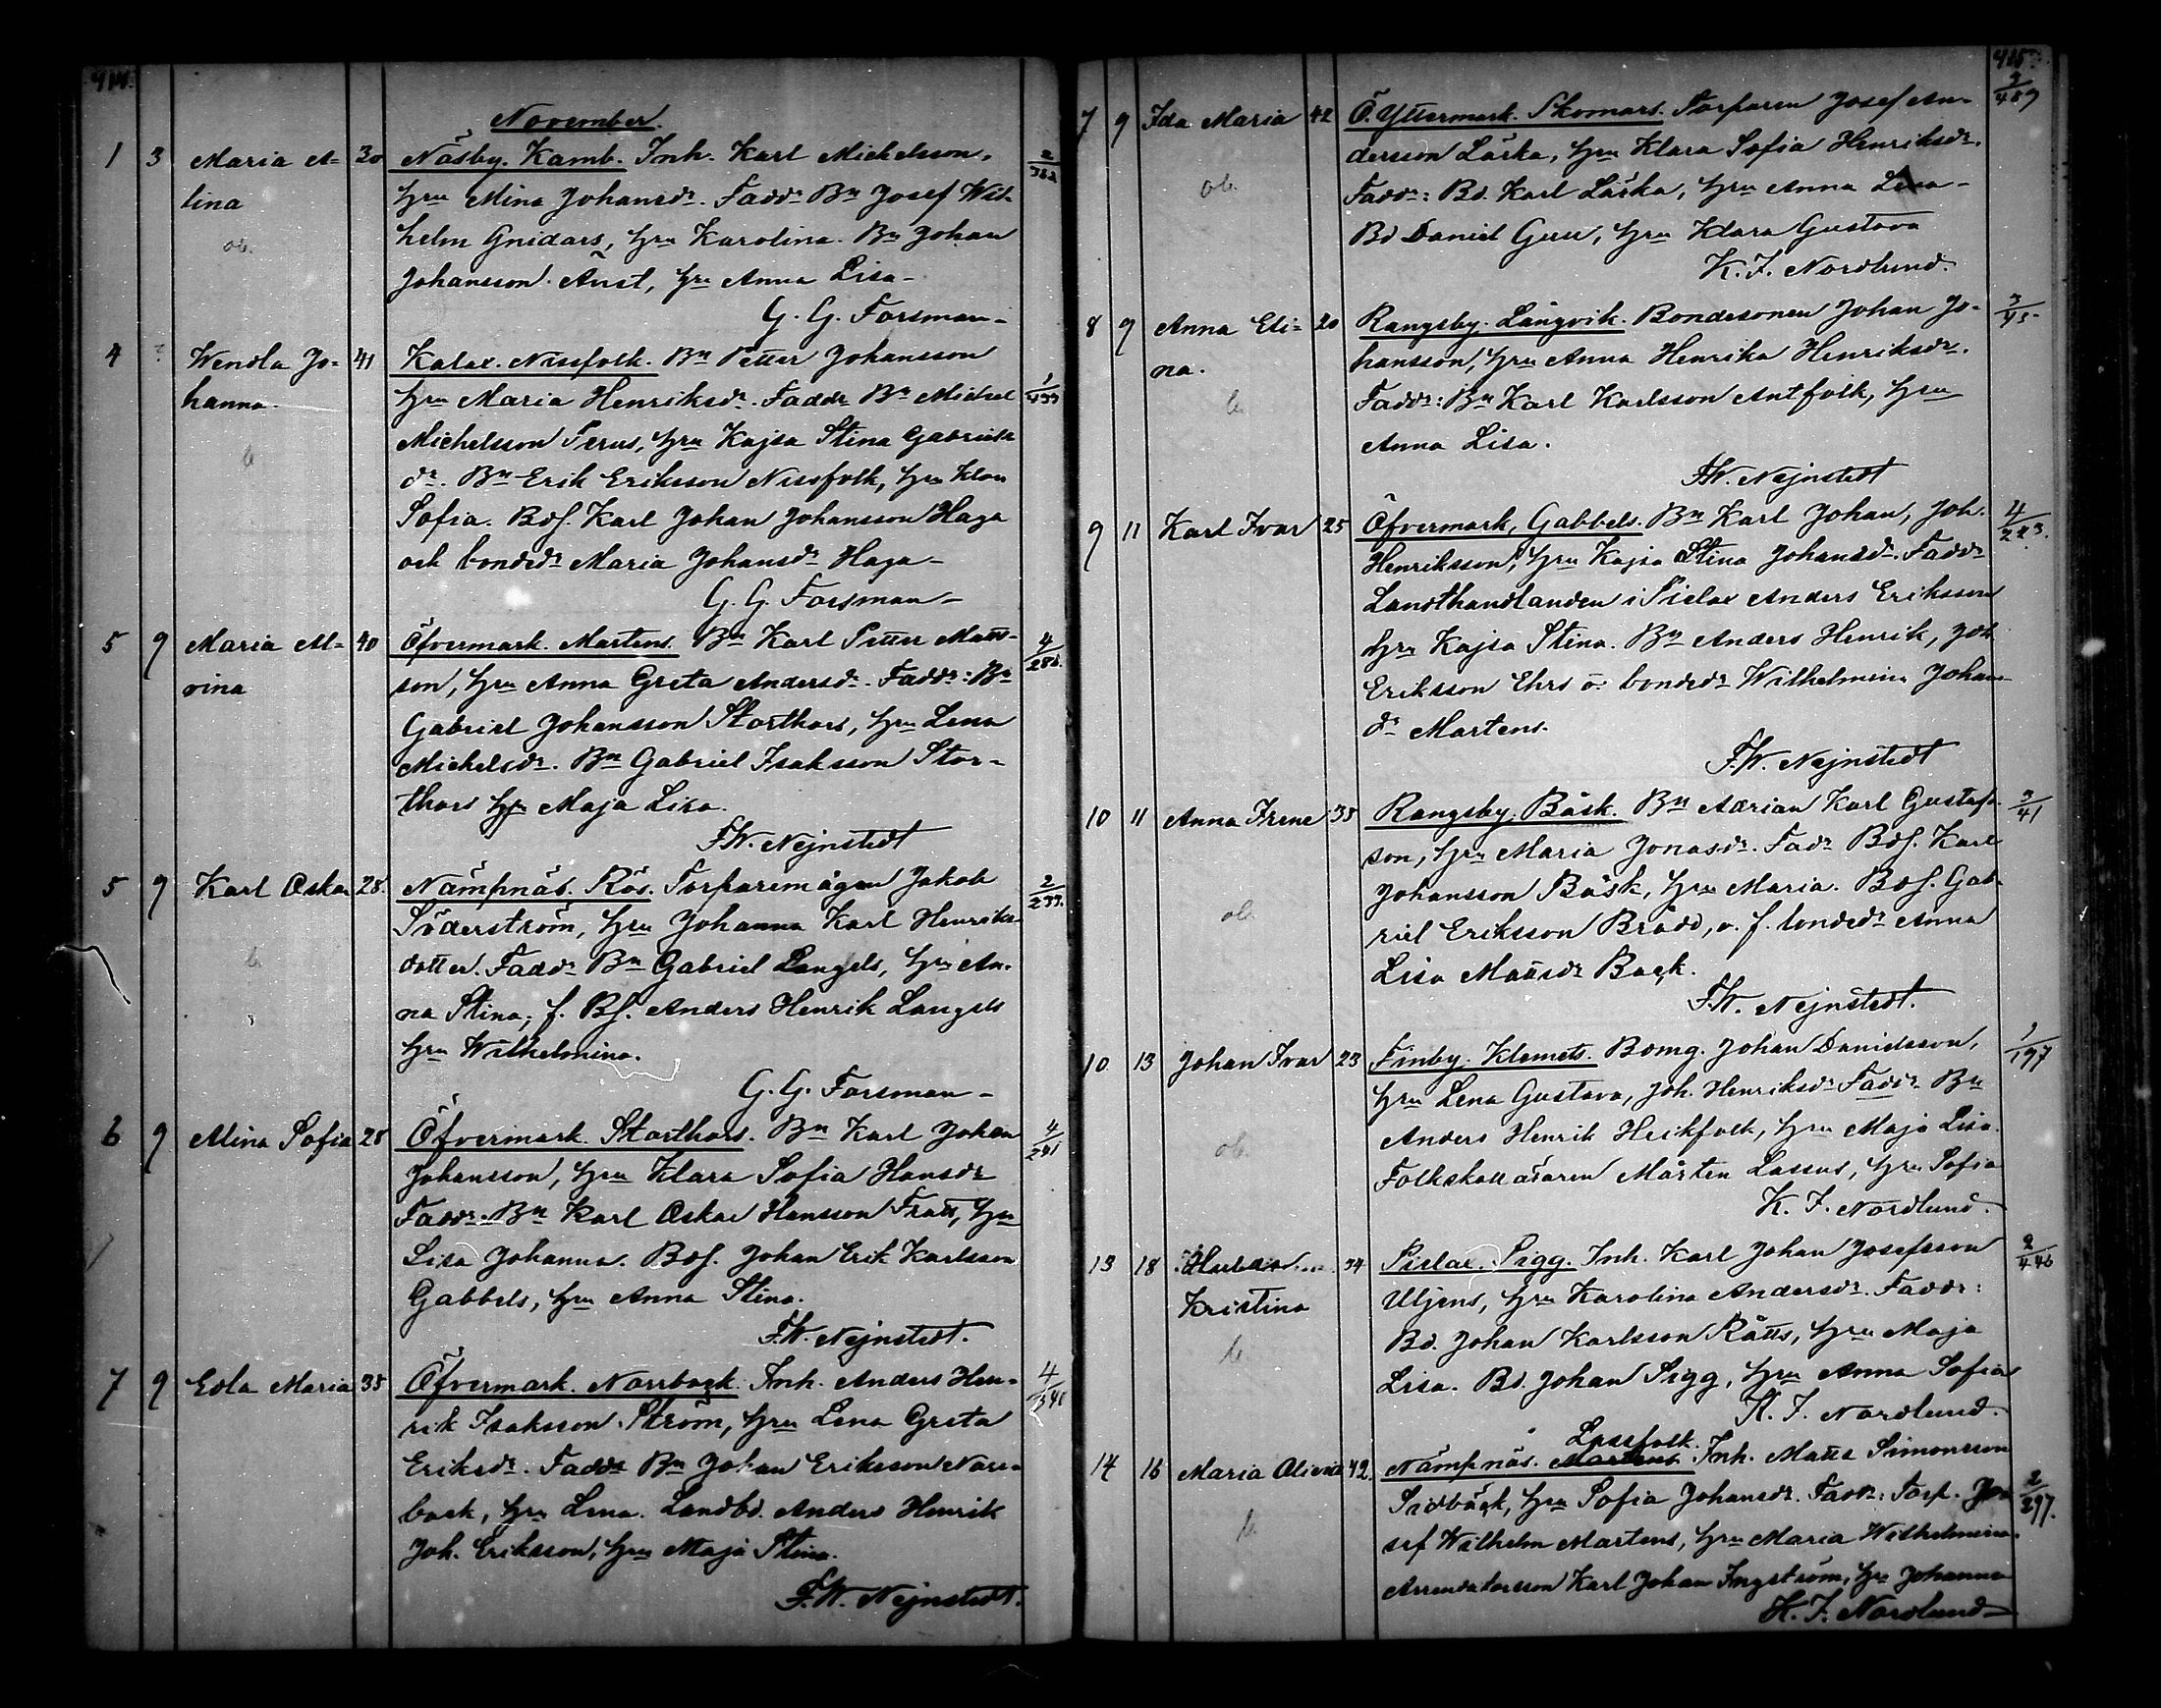 414.
November.
1 3 Maria A- 30 Näsby. Kamb. Inh. Karl Michelsson, 2/382
lina hru Mina Johansdr. Faddr Bn Josef Wil-
ob. helm Gnidars, hru Karolina. Bn Johan
Johansson Åust, hru Anna Lisa-
G. G. Forsman-
4 Wendla Jo- 41 Kalax. Nissfolk. Bn Petter Johansson
hanna. hru Maria Henriksdr. Faddr Bn Michel
Michelsson Perus, hru Kajsa Stina Gabriels
dr. Bn Erik Eriksson Nissfolk, hru Klara
Sofia. Bdf. Karl Johan Johansson Haga
och bondedr Maria Johansdr Haga-
G. G. Forsman-
5 9 Maria Al- 40 Öfvermark. Martens. Bn Karl Petter Matts-
vina son, hru Anna Greta Andersdr. Faddr: Bn
Gabriel Johansson Storthors, hru Lena
Michelsdr. Bn Gabriel Isaksson Stor-
thors hru Maja Lisa.
F.W. Nejnstedt
5 9 Karl Oskar 28. Nämpnäs. Rös. Torparemågen Jakob 2/299.
Söderström, hru Johanna Karl Henriks-
dotter. Faddr Bn Gabriel Langels, hru An-
na Stina, f. Bf. Anders Henrik Langels
hru Wilhelmina.
G. G. Forsman-
6 9 Alina Sofia 28 Öfvermark. Storthors. Bn Karl Johan 4/291
Johansson, hru Klara Sofia Hansdr
Faddr. Bn Karl Oskar Hansson Frans, hru
Lisa Johanna. Bdf. Johan Erik Karlsson
Gabbels, hru Anna Stina.
F.W. Nejnstedt.
7 9 Edla Maria 35 Öfvermark. Norrback. Inh. Anders Hen-
rik Isaksson Ström, hru Lena Greta
Eriksdr. Faddr Bn Johan Eriksson Norr-
back, hru Lena. Landbd. Anders Henrik
Joh. Eriksson, hru Maja Stina.
F.W. Nejnstedt.
415.
7 9 Ida Maria 42 Ö. Yttermark. Skomars. Torparen Josef An- 2/489
dersson Lärka, hru Klara Sofia Henriksdr.
ob. Faddr: Bd. Karl Lärka, hru Anna Lisa-
Bd Daniel Geru, hru Klara Gustava
K. J. Nordlund.
8 9 Anna Eli- 20 Rangsby. Långvik. Bondesonen Johan Jo- 3/45
na. hansson, hru Anna Henrika Henriksdr.
Faddr: Bn Karl Karlsson Antfolk, hru
Anna Lisa.
F.W. Nejnstedt
9 11 Karl Ivar 25 Öfvermark, Gabbels. Bn Karl Johan, Joh. 4/223.
Henriksson, hru Kajsa Stina Johansdr. Faddr
Landthandlanden i Pielax Anders Eriksson
hru Kajsa Stina. Bn Anders Henrik, Joh
Eriksson Ehrs o. bondedr Wilhelmina Johans-
dr Martens.
F.W. Nejnstedt
10 11 Anna Irene 35 Rangsby. Bäsk. Bn Adrian Karl Gustafs- 3/41
son, hru Maria Jonasdr. Fadr Bdf. Karl
Johansson Bäsk, hru Maria. Bdf. Gab-
ob. riel Eriksson Brådd, o. f. bondedr Anna
Lisa Mattsdr Back.
F.W. Nejnstedt.
10 13 Johan Ivar 23 Finby. Klemets. Bdmg. Johan Danielsson, 1/197
hru Lena Gustava, Joh. Henriksdr Faddr Bn
Anders Henrik Heikfolk, hru Maja Lisa.
ob. Folkskolläraren Mårten Lassus, hru Sofia
K. J. Nordlund.
13 18 34 Pielax. Sigg. Inh. Karl Johan Josefsson 2/446
Kristina Uljens, hru Karolina Andersdr. Faddr:
Bd. Johan Karlsson Rätts, hru Maja
Lisa. Bd. Johan Sigg, hru Anna Sofia
K. J. Nordlund.
Lassfolk.
14 16 Maria Olivia 42. Nämpnäs. Martens. Inh. Matts Simonsson
Sidbäck, hru Sofia Johansdr. Faddr: Torp. Jo- 2/297.
sef Wilhelm Martens, hru Maria Wilhelmina.
Arrendatorsson Karl Johan Ingström, hru Johanna
K. J. Nordlund-